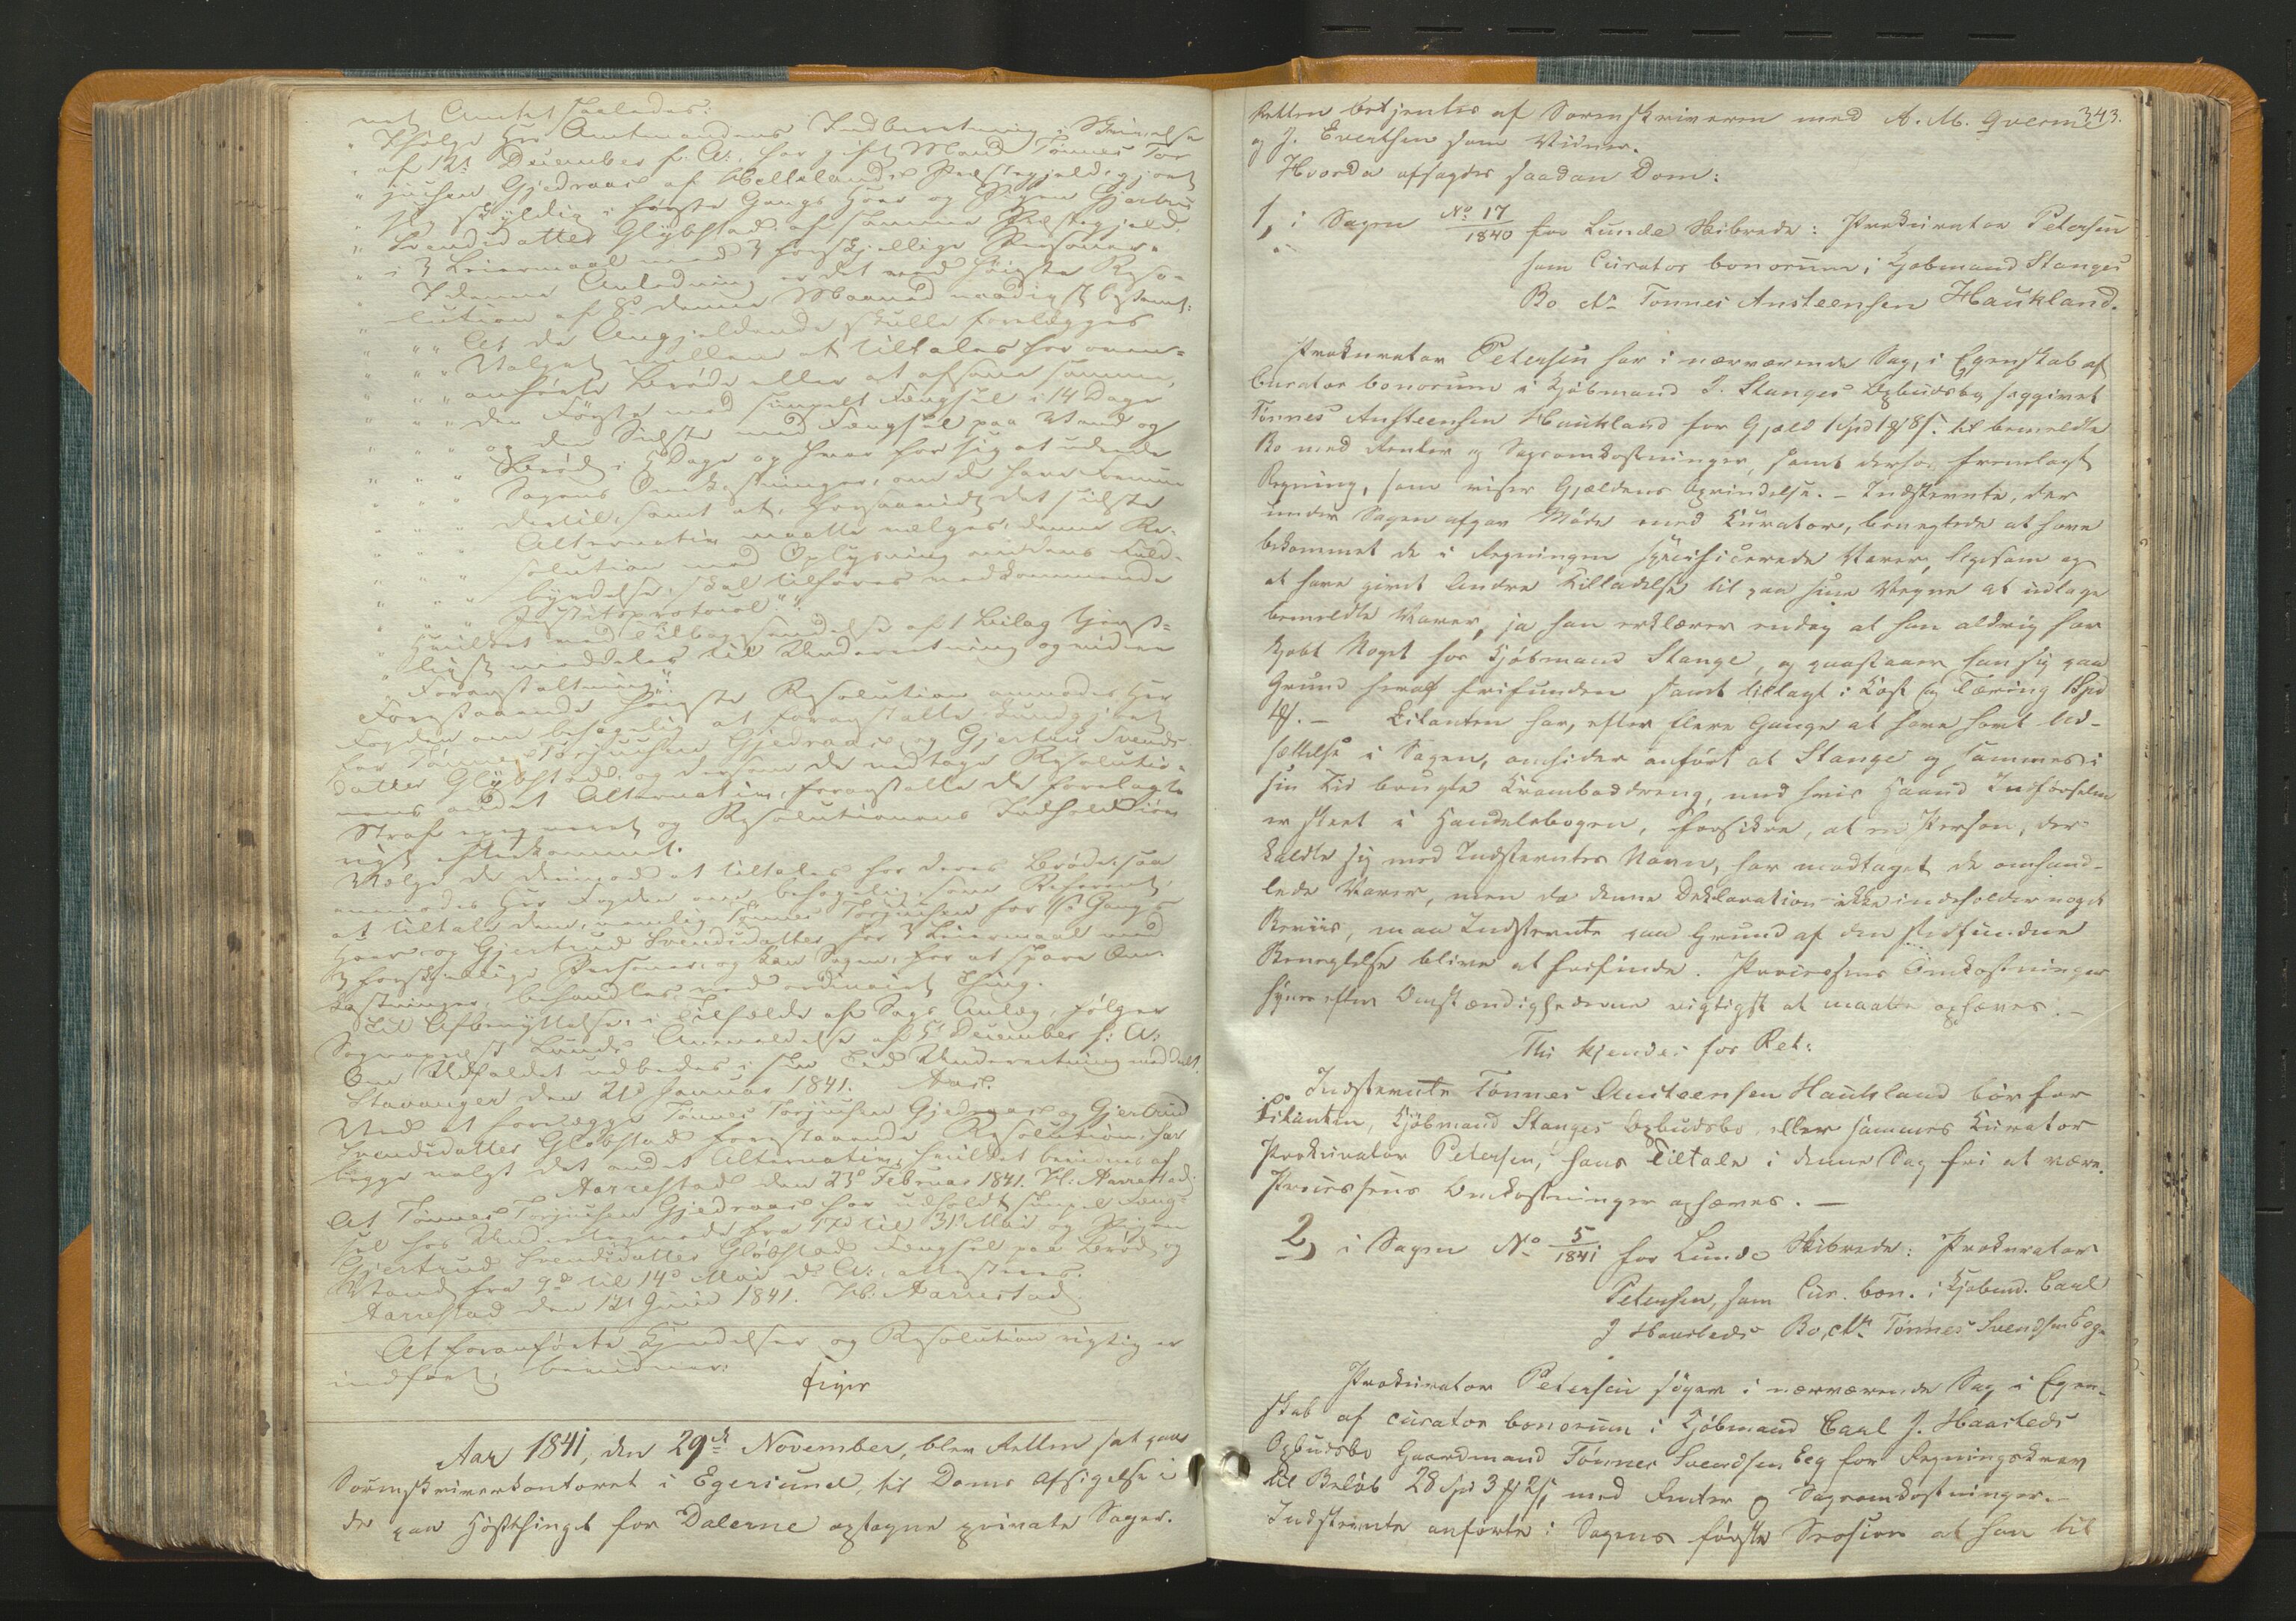 net Amtet saaledes:
" Ifølge Hr Amtmandens Indberetning i Skrivelse
" af 12te December f. A:, har gift Mand Tønnes Tor
" juusen Gjedraas af Hellelands Præstegjeld, gjort
" sig skyldig i første Gangs Hoer og Pigen Gjertru
" Svendsdatter Gløbstad af samme Præstegjeld,
" i 3 Leiermaal med 3 forskjellige Personer.
" I denne Anledning er det ved høieste Reso-
" lution af 8de denne Maaned naadigst bestemt:
" " " At de Angjeldende skulle forelægges
" " " Valget mellem at tiltales for oven-
" " " anførte Brøde eller at afsone samme,
" " " den Første med simpelt Fængsel i 14 Dage
" " " og den Sidste med Fængsel paa Vand og
" " " Brød i 5 Dage og hver for sig at udrede
" " " Sagens Omkostninger, om de have Evne
" " " dertil, samt at, forsaavidt det sidste
" " " Alternativ maatte vælges, denne Re-
" " " solution med Oplysning om dens Fuld-
" " " byrdelse, skal tilføres vedkommende
" " " Justitsprotocol."
" Hvilket med Tilbagesendelse af 1 Bilag tjenst-
" ligst meddeles til Underretning og videre
" Foranstaltning."
Forestaaende høieste Resolution anmodes Hr
Fogden om behagelig at foranstalte kundgjort
for Tønnes Torjuusen Gjedraas og Gjertrud Svends-
datter Gløbstad, og dersom de vedtage Resolutio-
nens andet Alternativ, foranstalte de forelagte
Straffe exeqveret og Resolutionens Indhold iøv
rigt efterkommet.
Vælge de derimod at tiltales for deres Brøde, saa
anmodes Hr Fogden om behagelig, som Referent,
at tiltale dem, nemlig Tønnes Torjuusen for 1ste Gangs
Hoer og Gjertrud Svendsdatter for 3 Leiermaal med
3 forskjellige Personer, og kan Sagen, for at spare Om-
kostninger, behandles ved ordinairt Thing.
Til Afbenyttelse, i Tilfælde af Sags Anlæg, følger
Sogneprest Lunds Anmeldelse af 5te December f: A:
Om Udfaldet udbedes i sin Tid Underretning meddelt.
Stavanger den 21de Januar 1841. Aas.
Ved at forelægge Tønnes Torjuusen Gjedraas og Gjertrud
Svendsdatter Gløbstad forestaaende Resolution, har
begge valgt det andet Alternativ, hvilket bevidnes af
Aarrestad den 23de Februar 1841. H: Aarrestad.
At Tønnes Torjuusen Gjedraas har udholdt simpel Fæng-
sel hos Undertegnede fra 17de til 31te Mai og Pigen
Gjertrud Svendsdatter Gløbstad Fængsel paa Brød og
Vand fra 9de til 14de Mai d: A:, attesteres.
Aarrestad den 12te Juni 1841. H: Aarrestad
At foranførte Kjendelser og Resolution rigtig er
indført, bevidner:
Feyer
Aar 1841, den 29de November, blev Retten sat paa
Sorenskriverkontoret i Egersund, til Doms Afsigelse i
de paa Høstthinget for Dalerne optagne private Sager.
343.
Retten betjentes af Sorenskriveren med A. M. Qverme
og J. Evertsen som Vidner.
Hvorda afsagdes saadan Dom:
1, i Sagen No 17/1840 for Lunde Skibrede: Prokurator Petersen
som Curator bonorum i Kjøbmand Stanges
Bo ctr Tønnes Ansteensen Haukland.
Prokurator Petersen har i nærværende Sag, i Egenskab af
Curator bonorum i Kjøbmand J. Stanges Opbudsbo sagsgivet
Tønnes Ansteensen Haukland for Gjæld 1 Spd 1 # 8 s. til bemeldte
Bo med Renter og Sagsomkostninger, samt derfor fremlagt
Regning, som viser Gjældens Oprindelse. – Indstevnte, der
under Sagen afgav Møde med Kurator, benegtede at have
bekommet de i Regningen specificerede Varer, ligesom og
at have givet Andre Tilladelse til paa sine Vegne at udtage
bemeldte Varer, ja han erklærer endog at han aldrig har
kjøbt Noget hos Kjøbmand Stange, og paastaaer han sig paa
Grund heraf frifunden samt tillagt i Kost og Tæring 1 Spd
4 #. – Citanten har, efter flere Gange at have havt Ud-
sættelse i Sagen, omsider anført at Stange og sammes i
sin Tid brugte Krambaddreng, med hvis Haand Indførselen
er skeet i Handelsbogen, forsikre, at en Person, der
kaldte sig med Indstevntes Navn, har modtaget de omhand-
lede Varer, men da denne Deklaration ikke indeholder noget
Beviis, maa Indstevnte paa Grund af den stedfundne
Benegtelse blive at frifinde. Processens Omkostninger
synes efter Omstændighederne rigtigst at maatte ophæves. –
Thi kjendes for Ret:
Indstevnte Tønnes Ansteensen Haukland bør for
Citanten, Kjøbmand Stanges Opbudsbo, eller sammes Kurator
Prokurator Petersen, hans Tiltale i denne Sag fri at være.
Processens Omkostninger ophæves. –
2, i Sagen No 5/1841 for Lunde Skibrede: Prokurator
Petersen, som Cur. bon. i Kjøbmd. Carl
J Haasteds Bo, ctr Tønnes Svendsen Eeg.
Prokurator Petersen søger i nærværende Sag i Egen-
skab af curator bonorum i Kjøbmand Carl J. Haasteds
Opbudsbo Gaardmand Tønnes Svendsen Eeg for Regningskrav
til Beløb 28 Spd 3 # 2 s, med Renter og Sagsomkostninger. –
Indstevnte anførte i Sagens første Session at han til